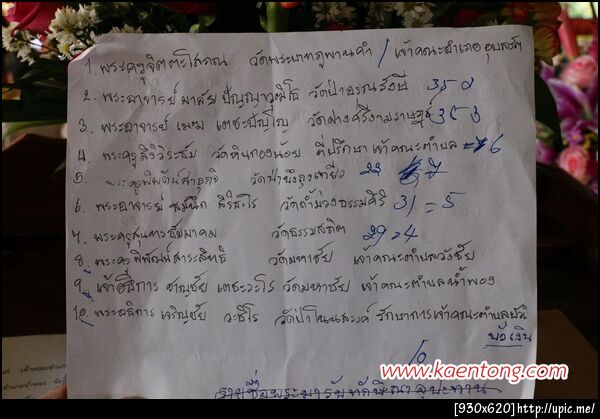 1. พระครูจิตตะโสภณ วัดพระบาทภูพานคำ / เจ้าคณะอำเภออุบลรัตน์
2. พระอาจารย์ มาลัย ปัญญาวุฒิโธ วัดป่าอรณรังษี 35
3. พระอาจารย์ เตชะปัญโญ 35
4. พระครูสิริวิระธัม วัดหินกองน้อย ที่ปรึกษาเจ้าคณะตำบล = 6
5. พระครูพิมตันสาธุกิจ วัดป่าบึงถุงเทียว 22 7
6. พระอาจารย์ สมนึก สิริธะโร วัดถ้ำม่วงธรรมคีรี 31 = 5
7. พระครูสุนทรธัมมาคม วัดธรรมสถิต 29 = 4
8. พระครูพิพัฒน์สาระสิทธิ วัดมหาชัย เจ้าคณะตำบลวังชัย
9. เจ้าอธิการ ชาญชัย เตชะวะโร วัดมหาชัย เจ้าคณะตำบลน้ำพอง
10. พระอธิการ เจริญชัย วะธิโร วัดป่าโนนสวรรค์ รักษาการเจ้าคณะตำบลบัว
บัวเงิน
10
www.kaentong.com
รายชื่อพระมารับทักษิณาลุปะทาน
[930x620]http://upic.me/